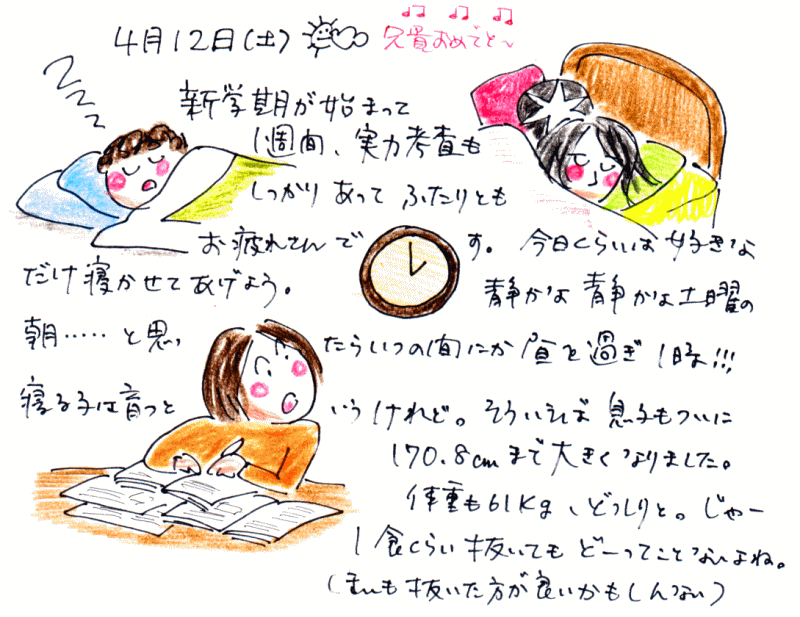 4月12日(土)
兄貴おめでと〜
新学期が始まって
1週間、実力考査も
しっかり あって ふたりとも
お疲れさんで す。 今日くらいは 好きな
だけ 寝かせて あげよう。 静かな 静かな 土曜の
朝‥‥‥と思っ たらいつの間にか 昼を過ぎ 1時!!!
寝る子は育つと いうけれど。 そういえば 息子もついに
170.8cmまで 大きく なりました。
体重も61Kg、どっしりと。じゃー
1食くらい 抜いても どーってことないよね。
( も 抜いた 方が 良いかも しんない)